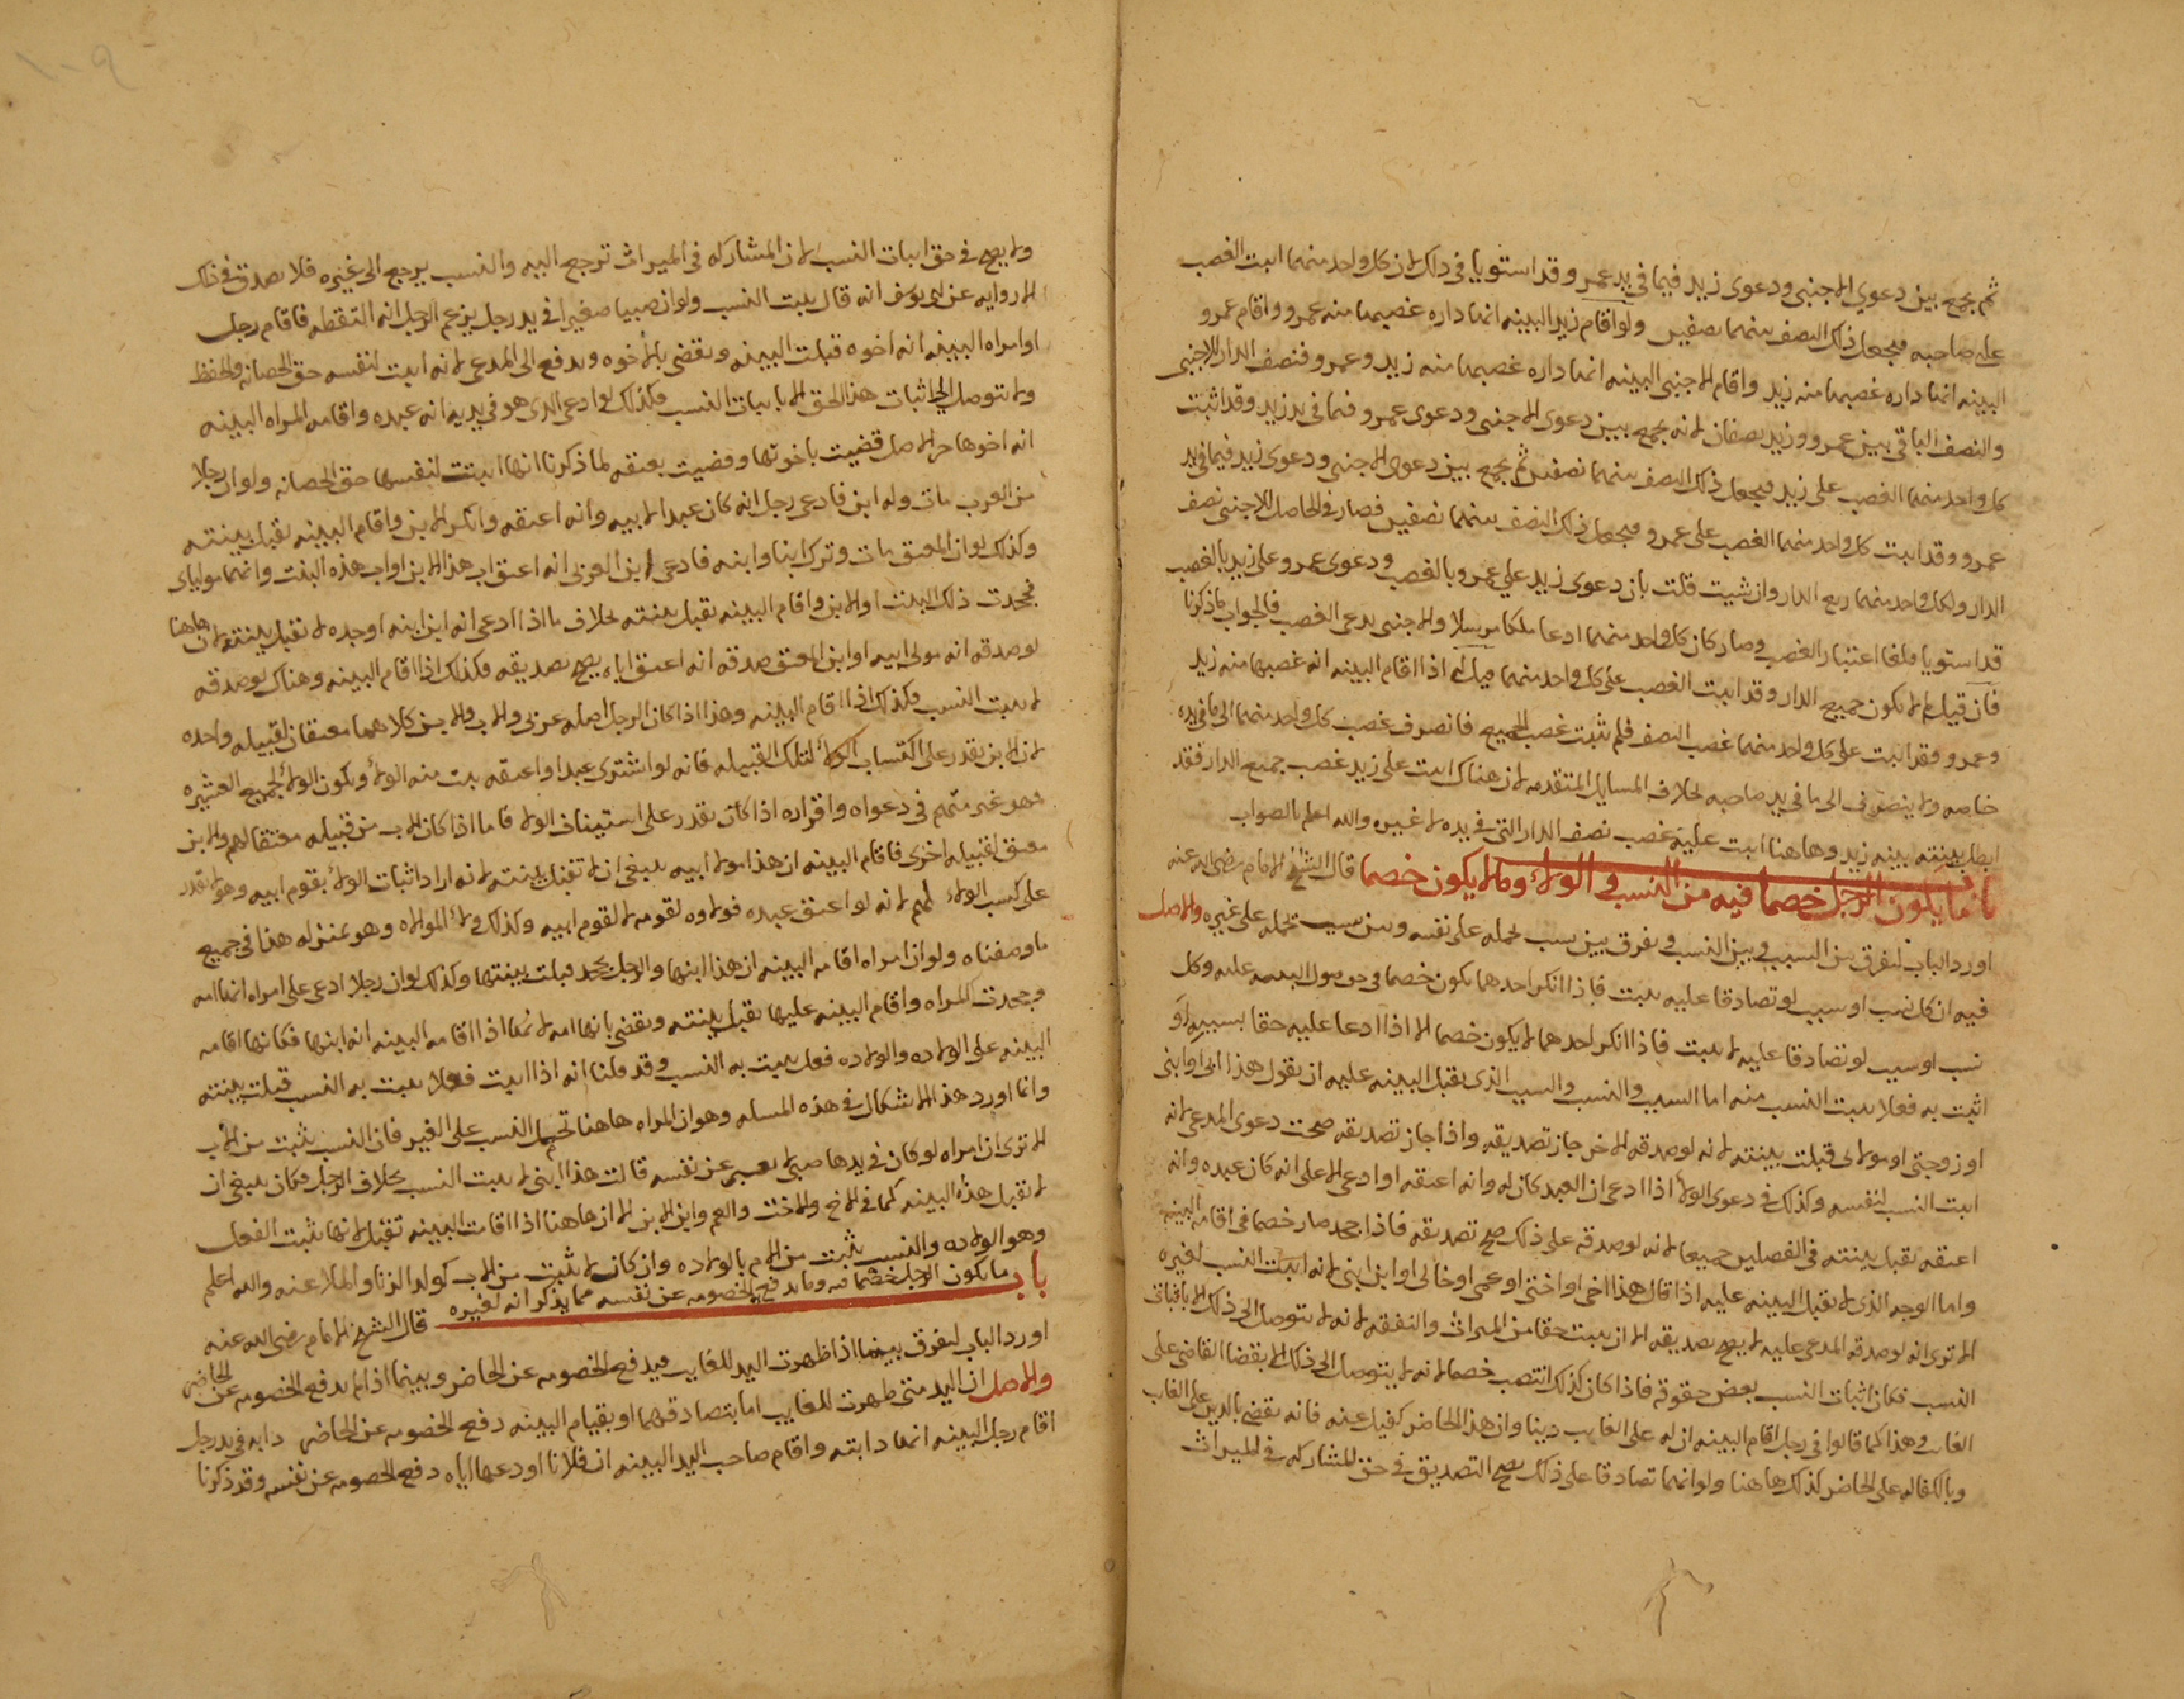 ثم يجمع بين دعوي الاجنبى ودعوى زيد فيما فى يد عمرو وقد استويا فى ذلك لان كل واحد منهما اثبت الغصب
على صاحبه فيجعل ذلك النصف بينهما نصفين ولو اقام زيد البينه انها داره غصبها منه عمرو واقام عمرو
البينه انها داره غصبها منه زيد واقام الاجنبى البينه انها داره غصبها منه زيد وعمرو فنصف الدار للاجنبى
والنصف الباقى بين عمرو وزيد نصفان لانه يجمع بين دعوى الاجنبى ودعوى عمرو فيما فى يد زيد وقد اثبت
كل واحد منهما الغصب على زيد فيجعل ذلك النصف بينهما نصفين ثم يجمع بين دعوى الاجنبى ودعوى زيد فيما فى يد
عمرو وقد اثبت كل واحد منهما الغصب على عمرو فيجعل ذلك النصف بينهما نصفين فصار فى الحاصل للاجنبى نصف
الدار ولكل واحد منهما ربع الدار وان شيت قلت بان دعوى زيد على عمرو بالغصب ودعوى عمرو على زيد بالغصب
قد استويا فلغا اعتبار الغصب وصار كان كل واحد منهما ادعا ملكا مرسلا والاجنبى يدعى الغصب فالجواب ما ذكرنا
فان قيل لم لا يكون جميع الدار وقد اثبت الغصب على كل واحد منهما قيل له اذا اقام البينه انه غصبها منه زيد
وعمرو فقد اثبت على كل واحد منهما غصب النصف فلم يثبت غصب الجميع فانصرف غصب كل واحد منهما الى ما فى يده
خاصه ولا ينصرف الى ما فى يد صاحبه بخلاف المسايل المتقدمه لان هناك اثبت على زيد غصب جميع الدار فقد
ابطل بينته بينه زيد وها هنا اثبت عليه غصب نصف الدار التى فى يده لا غيره والله اعلم بالصواب
باب ما يكون الرجل خصما فيه من النسب والولاء وما لا يكون خصما قال الشيخ الامام رضى الله عنه
اورد الباب ليفرق بين السبب وبين النسب ويفرق بين سبب يحمله على نفسه وبين سبب يحمله على غيره والاصل
فيه ان كل نسب او سبب لو تصادقا عليه يثبت فاذا انكر احدهما يكون خصما فى حق قبول البينه عليه وكل
نسب او سبب لو تصادقا عليه لا يثبت فاذا انكر احدهما لا يكون خصما الا اذا ادعا عليه حقا بسببه او
اثبت به فعلا يثبت النسب منه اما السبب والنسب والسبب الذى يقبل البينه عليه ان يقول هذا ابى او ابنى
او زوجتى او مولاى قبلت بينته لانه لو صدقه الاخر جاز تصديقه واذا جاز تصديقه صحت دعوى المدعى لانه
اثبت النسب لنفسه وكذلك فى دعوى الولاء اذا ادعى ان العبد كان له وانه اعتقه او ادعى الاعلى انه كان عبده وانه
اعتقه يقبل بينته فى الفصلين جميعا لانه لو صدقه على ذلك صح تصديقه فاذا جحد صار خصما فى اقامة البينه
واما الوجه الذى لا يقبل البينه عليه اذا قال هذا اخى او اختى او عمى او خالى او ابن ابنى لانه اثبت النسب لغيره
الا ترى انه لو صدقه المدعى عليه لا يصح تصديقه الا ان يثبت حقا من الميراث والنفقه لانه لا يتوصل الى ذلك الا باثبات
النسب فكان اثبات النسب بعض حقوقه فاذا كان كذلك انتصب خصما لانه لا يتوصل الى ذلك الا بقضا القاضى على
الغايب وهذا كما قالوا فى رجل اقام البينه ان له على الغايب دينا وان هذا الحاضر كفيل عنه فانه يقضى بالدين على الغايب
وبالكفاله على الحاضر كذلك ها هنا ولو انهما تصادقا على ذلك يصح التصديق فى حق المشاركه فى الميراث
ولا يصح فى حق اثبات النسب لان المشاركه فى الميراث ترجع اليه والنسب يرجع الى غيره فلا يصدق فى ذلك
الا روايه عن ابى يوسف انه قال يثبت النسب ولو ان صبيا صغيرا فى يد رجل يزعم الرجل انه التقطه فاقام رجل
او امراه البينه انه اخوه قبلت البينه ويقضى بالاخوه ويدفع الى المدعى لانه اثبت لنفسه حق الحضانه والحفظ
ولا يتوصل الى اثبات هذا الحق الا باثبات النسب فكذلك لو ادعى الذى هو فى يديه انه عبده واقامت المراه البينه
انه اخوها حر الاصل قضيت باخوتها وقضيت بعتقه لما ذكرنا انها اثبتت لنفسها حق الحضانه ولو ان رجلا
من العرب مات وله ابن فادعى رجل انه كان عبدا لابيه وانه اعتقه وانكر الابن واقام البينه يقبل بينته
وكذلك لو ان المعتق مات وترك ابنا وابنه فادعى ابن العربى انه اعتق اب هذا الابن او اب هذه البنت وانهما مولياى
فجحدت ذلك البنت او الابن واقام البينه يقبل بينته بخلاف ما اذا ادعى انه ابن ابنه او جده لا تقبل بينته لان هاهنا
لو صدقه انه مولى ابيه او ابن المعتق صدقه انه اعتق اباه يصح تصديقه فكذلك اذا اقام البينه وهناك لو صدقه
لا يثبت النسب فكذلك اذا اقام البينه وهذا اذا كان الرجل اصله عربى والاب والابن كلاهما معتقان لقبيله واحده
لان الابن يقدر على اكتساب الولاء لتلك القبيله فانه لو اشترى عبدا واعتقه يثبت منه الولاء ويكون الولاء لجميع العشيره
فهو غير متهم فى دعواه واقراره اذا كان يقدر على استيناف الولاء فاما اذا كان الاب من قبيله معتقا لهم والابن
معتق لقبيله اخرى فاقام البينه ان هذا مولا ابيه ينبغى ان لا تقبل بينته لانه اراد اثبات الولاء بقوم ابيه وهو لا يقدر
على كسب الولاء لهم لانه لو اعتق عبده فولاوه لقومه لا لقوم ابيه وكذلك ولاء الموالاه وهو بمنزله هذا فى جميع
ما وصفناه ولو ان امراه اقامت البينه ان هذا ابنها والرجل يجحد قبلت بينتها وكذلك لو ان رجلا ادعى على امراه انها امه
وجحدت المراه واقام البينه عليها تقبل بينته ويقضى بانها امه لانها اذا اقامت البينه انه ابنها فكانها اقامت
البينه على الولاده والولاده فعل يثبت به النسب وقد قلنا انه اذا اثبت فعلا يثبت به النسب قبلت بينته
وانما اورد هذا الاشكال فى هذه المسله وهو ان المراه هاهنا تحمل النسب على الغير فان النسب يثبت من الاب
الا ترى ان امراه لو كان فى يدها صبى لا يعبر عن نفسه قالت هذا ابنى لا يثبت النسب بخلاف الرجل فكان ينبغى ان
لا تقبل هذه البينه كما فى الاخ والاخت والعم وابن الابن الا ان هاهنا اذا اقامت البينه تقبل لانها تثبت الفعل
وهو الولاده والنسب يثبت من الام بالولاده وان كان لا يثبت من الاب كولد الزنا والملاعنه والله اعلم
باب ما يكون الرجل خصما فيه وما يدفع الخصومه عن نفسه مما يذكر انه لغيره قال الشيخ الامام رضى الله عنه
اورد الباب ليفرق بينما اذا ظهرت اليد للغايب فيدفع الخصومه عن الحاضر وبينما اذا لم يدفع الخصومه عن الحاضر
والاصل ان اليد متى ظهرت للغايب اما بتصادقهما او بقيام البينه دفع الخصومه عن الحاضر دابه فى يد رجل
اقام رجل البينه انها دابته واقام صاحب اليد البينه ان فلانا اودعها اياه دفع الخصومه عن نفسه وقد ذكرنا